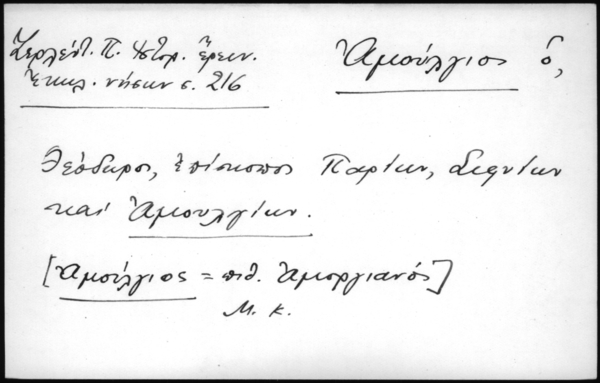 Ζερλέντ. Π. Ἱστορ. ἔρευν.
ἐκκλ. νήσων σ. 216
Ἀμούλγιος ὁ,
Θεόδωρος, ἐπίσκοπος Παρίων, Σιφνίων
καὶ Ἀμουλγίων.
[Ἀμούλγιος = πιθ. Ἀμοργιανός]
Μ. Κ.